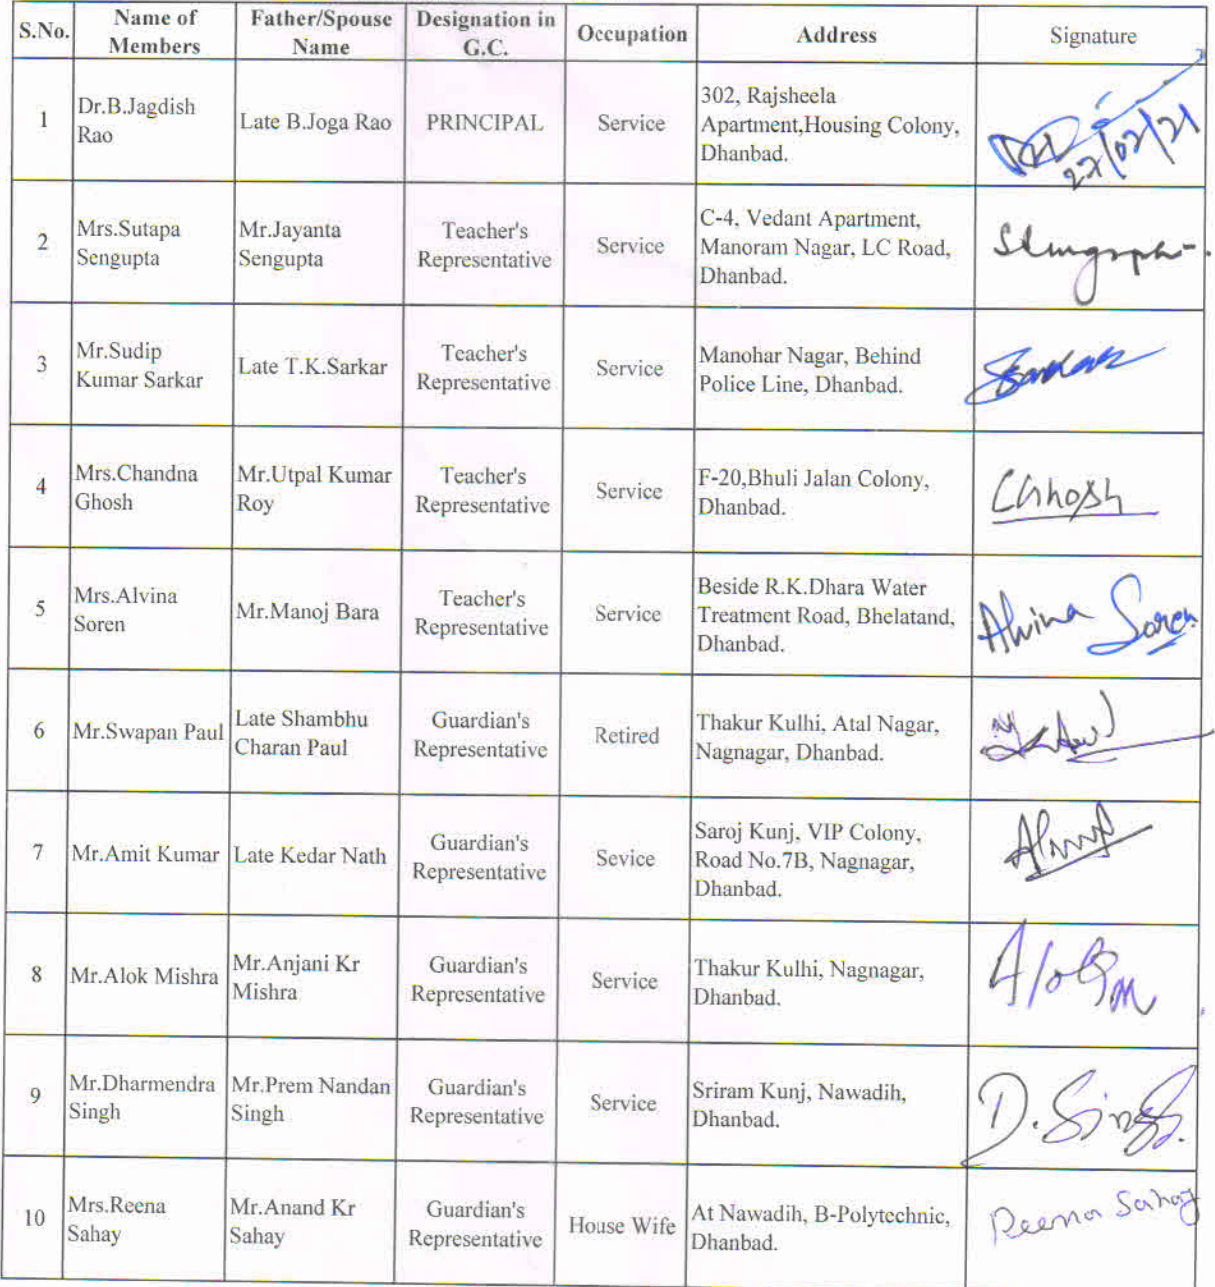 S.No. Name of Members Father/Spouse Name Designation in G.C. Occupation Address Signature
1 Dr.B.Jagdish Rao Late B.Joga Rao PRINCIPAL Service 302, Rajsheela Apartment,Housing Colony, Dhanbad. 22/02/21
2 Mrs.Sutapa Sengupta Mr.Jayanta Sengupta Teacher's Representative Service C-4, Vedant Apartment, Manoram Nagar, LC Road, Dhanbad.
3 Mr.Sudip Kumar Sarkar Late T.K.Sarkar Teacher's Representative Service Manohar Nagar, Behind Police Line, Dhanbad.
4 Mrs.Chandna Ghosh Mr.Utpal Kumar Roy Teacher's Representative Service F-20,Bhuli Jalan Colony, Dhanbad. CGhosh
5 Mrs.Alvina Soren Mr.Manoj Bara Teacher's Representative Service Beside R.K.Dhara Water Treatment Road, Bhelatand, Dhanbad. Alvina Soren
6 Mr.Swapan Paul Late Shambhu Charan Paul Guardian's Representative Retired Thakur Kulhi, Atal Nagar, Nagnagar, Dhanbad.
7 Mr.Amit Kumar Late Kedar Nath Guardian's Representative Sevice Saroj Kunj, VIP Colony, Road No.7B, Nagnagar, Dhanbad.
8 Mr.Alok Mishra Mr.Anjani Kr Mishra Guardian's Representative Service Thakur Kulhi, Nagnagar, Dhanbad.
9 Mr.Dharmendra Singh Mr.Prem Nandan Singh Guardian's Representative Service Sriram Kunj, Nawadih, Dhanbad. D. Singh.
10 Mrs.Reena Sahay Mr.Anand Kr Sahay Guardian's Representative House Wife At Nawadih, B-Polytechnic, Dhanbad. Reena Sahay